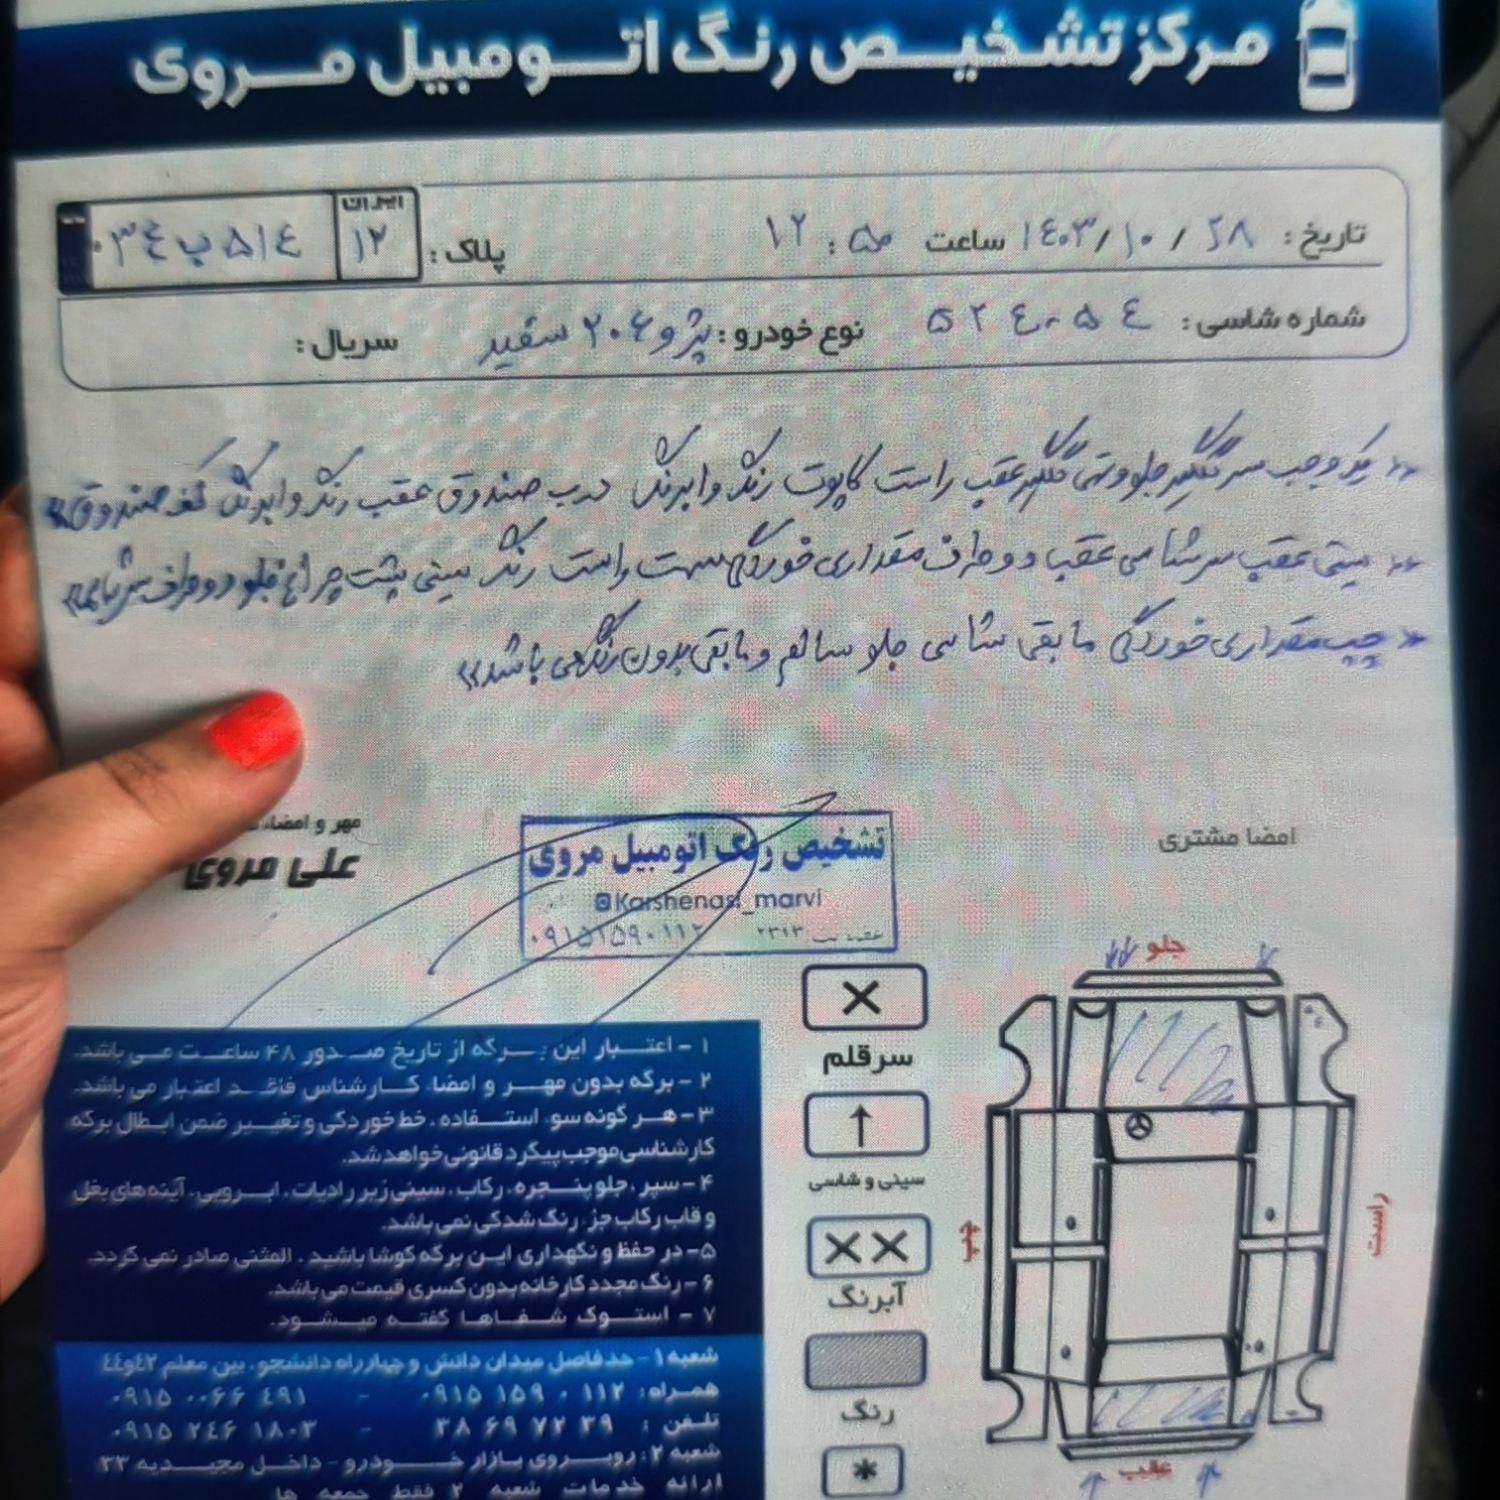 مرکز تشخیص رنگ اتومبیل مروی
تاریخ: ۱۴۰۳/۱۰/۲۸ ساعت ۱۲:۵۰ پلاک: ایران ۱۲ ۵۱۴ ب ۳۴
شماره شاسی: ۵۲۴۰۵۴ نوع خودرو: پژو ۲۰۶ سفید سریال:
سر گلگیر جلو و گلگیر عقب راست کاپوت رنگ و ابرنگ درب صندوق عقب رنگ و ابرنگ کف صندوق
سینی عقب سر شاسی عقب دو طرف مقداری خوردگی سمت راست رنگ سینی پشت چراغ جلو دو طرف
چپ مقداری خوردگی مابقی شاسی جلو سالم و مابقی بدون رنگ می باشد
امضا مشتری
مهر و امضاء
علی مروی
تشخیص رنگ اتومبیل مروی
@Karshenasi_marvi
۰۹۱۵۱۵۹۰۱۱۲
سرقلم
سینی و شاسی
آبرنگ
رنگ
*
جلو
راست
چپ
عقب
۱- اعتبار این برگه از تاریخ صدور ۴۸ ساعت می باشد.
۲- برگه بدون مهر و امضاء کارشناس فاقد اعتبار می باشد.
۳- هر گونه سوء استفاده، خط خوردگی و تغییر ضمن ابطال برگه
کارشناسی موجب پیگرد قانونی خواهد شد.
۴- سپر، جلو پنجره، رکاب، سینی زیر رادیات، ابرویی، آینه های بغل
و قاب رکاب جزء رنگ شدگی نمی باشد.
۵- در حفظ و نگهداری این برگه کوشا باشید، المثنی صادر نمی گردد.
۶- رنگ مجدد کارخانه بدون کسری قیمت می باشد.
۷- استوک شفاها گفته میشود.
شعبه ۱- حدفاصل میدان دانش و چهارراه دانشجو، بین معلم ۴۲ و ۴۴
همراه: ۰۹۱۵ ۱۵۹ ۰ ۱۱۲ - ۰۹۱۵ ۰۰۶۶ ۴۹۱
تلفن: ۳۸ ۶۹ ۷۲ ۳۹ - ۰۹۱۵ ۲۴۶ ۱۸۰۳
شعبه ۲: روبروی بازار خودرو - داخل مجیدیه ۳۳
ارائه خدمات شعبه ۲ فقط جمعه ها